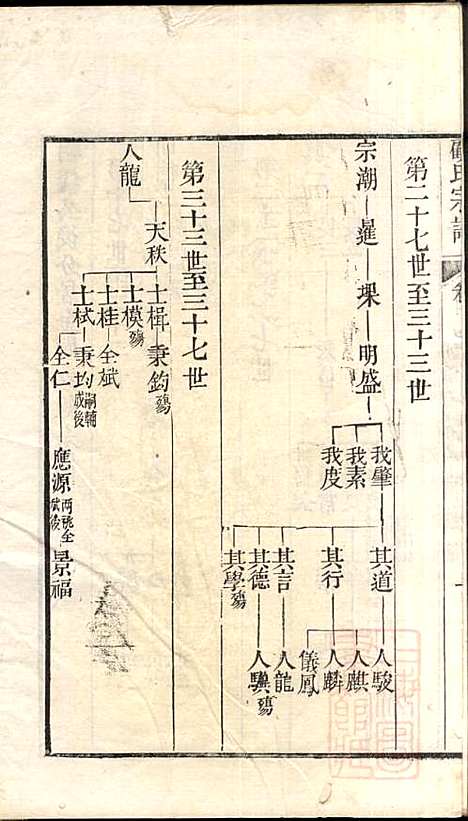 氏宗譜
第二十七世至三十三世
宗潮 暹 堁 明盛
我肇 其道 人駿
人麒
我素 其行 人麟
儀鳳
我度
其言 人龍
其德 人驥殤
其學殤
第三十三世至三十七世
人龍 天秩
士楫 秉鈞殤
士模殤
士桂 全斌
士栻 秉均嗣輔成後
全仁 應源兩祧全斌後 景福